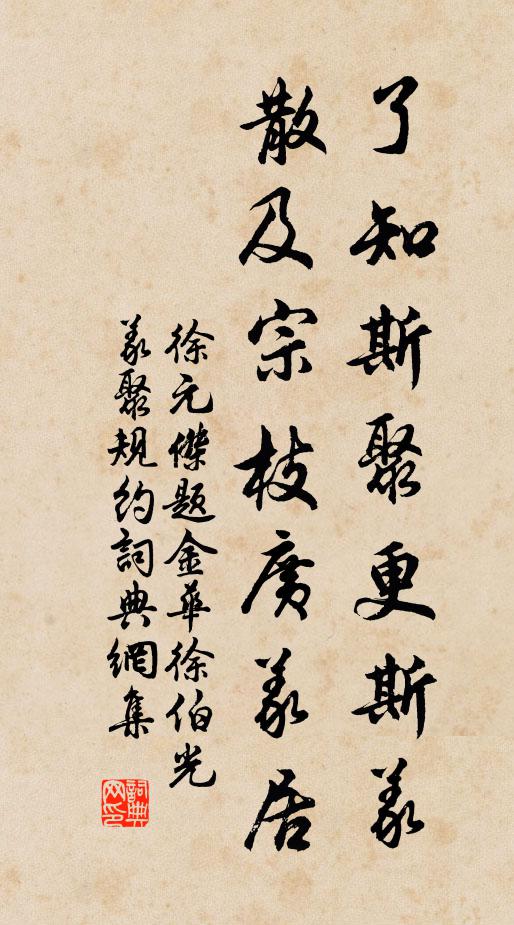 了知斯聚更斯義
散及宗枝廣義居
徐元傑題金華徐伯光
義聚規約詞典網集
詞典
网印